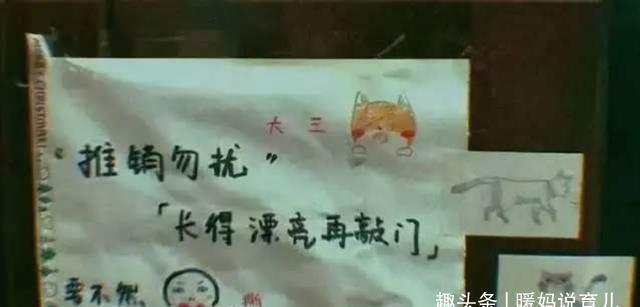 大三
"推销勿扰"
「长得漂亮再敲门」
要不然
趣头条 | 暖妈说育儿